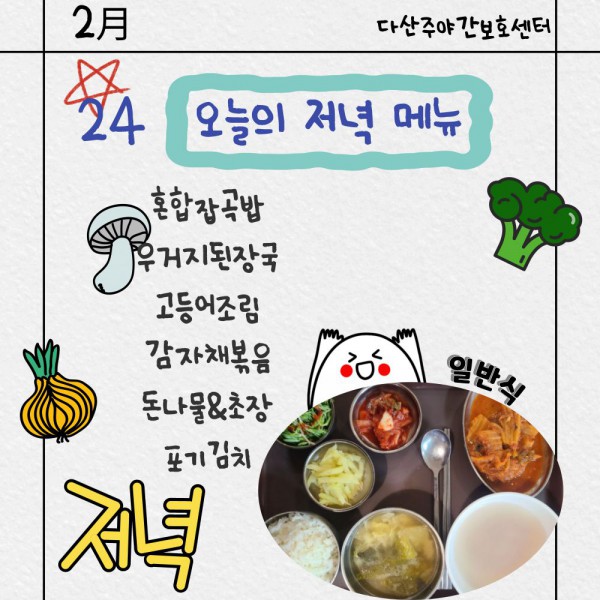 2月
다산주야간보호센터
24
오늘의 저녁 메뉴
혼합잡곡밥
우거지된장국
고등어조림
감자채볶음
돈나물&초장
포기김치
일반식
저녁